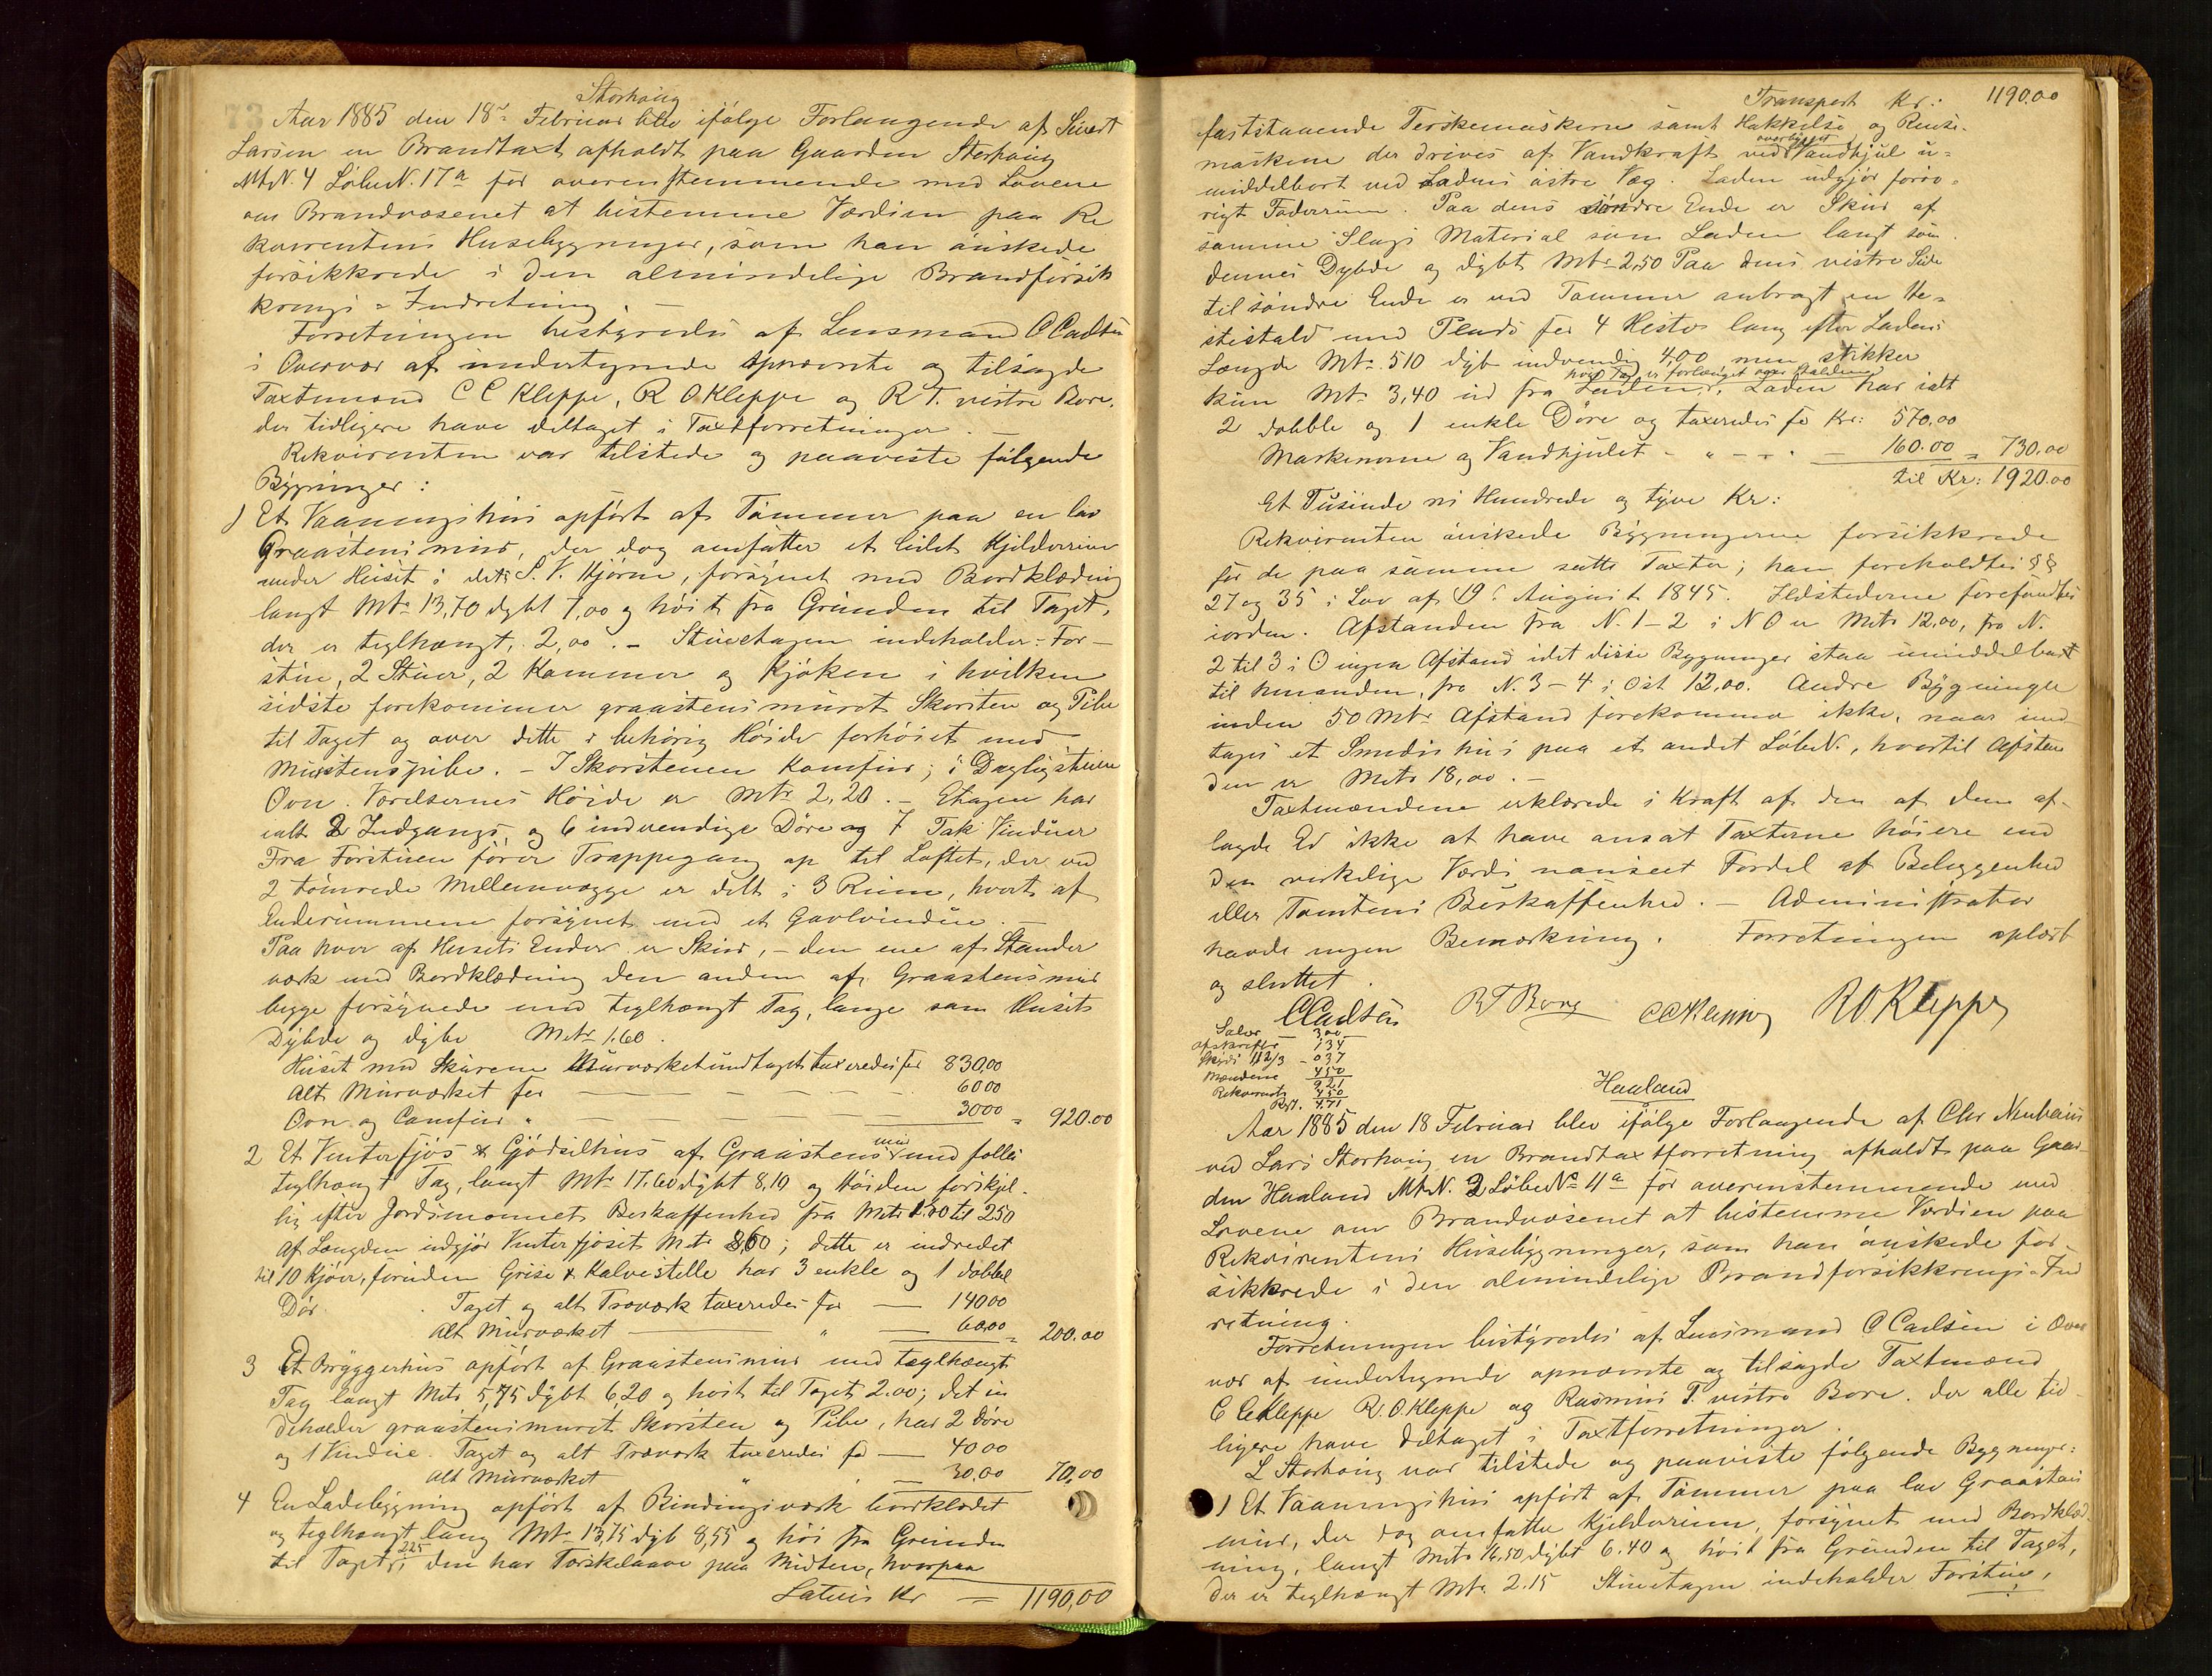 73
Storhaug
Aar 1885 den 18de Februar blev ifølge Forlangende af Sivert
Larsen en Brandtaxt afholdt paa Gaarden Storhaug
Mt.N. 4 LøbeN. 17a for overenstemmende med Lovene
om Brandvæsenet at bestemme Værdien paa Re
kvirentens Husebygninger, som han ønskede
forsikkrede i den almindelige Brandforsik
krings-Indretning. —
Forretningen bestyredes af Lensmand C Carlsen
i Overvær af undertegnede opnævnte og tilsagde
Taxtmænd C C Kleppe, R O Kleppe og R T. vestre Bore,
der tidligere have deltaget i Taxtforretninger. —
Rekvirenten var tilstede og paaviste følgende
Bygninger:
1 Et Vaaningshus opført af Tømmer paa en lav
Graastensmur, der dog omfatter et lidet Kjelderrum
under Huset i dets S. V. Hjørne, forsynet med Bordklædning
langt Mtr 13,70 dybt 7,00 og høit fra Grunden til Taget,
der er teglhængt, 2,00. — Stuetagen indeholder: For-
stue, 2 Stuer, 2 Kammer og Kjøken i hvilken
sidste forekommer graastensmuret Skorsten og Pibe
til Taget og over dette i behørig Høide forhøiet med
Murstenspibe. — I Skorstenen Komfur; i Dagligstuen
Ovn. Værelsernes Høide er Mtr 2,20. — Etagen har
ialt 2 Indgangs- og 6 indvendige Døre og 7 Fak Vinduer
Fra Forstuen fører Trappegang op til Loftet, der ved
2 tømrede Mellemvægge er delt i 3 Rum, hvert af
Enderummene forsynet med et Gavlvindue. —
Paa hver af Husets Ender er Skur, — den ene af Stander
værk med Bordklædning den anden af Graastensmur
begge forsynede med teglhængt Tag, lange som Husets
Dybde og dybe Mtr 1.60.
Huset med Skurene Murværket undtaget taxeredes for 830,00
Alt Murværket for — — — — — 60 00
Ovn og Comfur " — 30 00 = 920.00
2 Et Vinterfjøs & Gjødselhus af Graastensmur med falles
teglhængt Tag, langt Mtr 17,60 dybt 8,10 og Høiden forskjel-
lig efter Jordsmonnets Beskaffenhed fra Mtr 1.00 til 2 50
Af Længden udgjør Vinterfjøset Mtr 8,60; dette er indredet
til 10 Kjøer, foruden Grise & Kalvestelle har 3 enkle og 1 dobbel
Dør. Taget og alt Træværk taxeredes for — 140 00
Alt Murværket — " — 60,00 = 200.00
3 Et Bryggerhus opført af Graastensmur med teglhængt
Tag langt Mtr 5,75 dybt 6,20 og høit til Taget 2.00; det in
deholder graastensmuret Skorsten og Pibe, har 2 Døre
og 1 Vindue. Taget og alt Træværk taxeredes for — 40 00
Alt Murværket " — 30,00 70,00
4 En Ladebygning opført af Bindingsværk bordklædet
og teglhængt lang Mtr 13,75 dyb 8,55 og høi fra Grunden
til Taget 225; den har Tærskelaave paa Midten, hvorpaa
Latus Kr — 1190,00
Transport Kr: 1190.00
faststaaende Terskemaskine samt Hakkelse og Rense-
maskine der drives af Vandkraft ved overliggende Vandhjul u-
middelbart ved Ladens østre Væg. Laden udgjør forøv-
rigt Foderrum. Paa dens søndre Ende er Skur af
samme Slags Material som Laden langt som
dennes Dybde og dybt Mtr 2,50 Paa dens vestre Side
til søndre Ende er ved Tømmer anbragt en He-
stestald med Plads for 4 Heste lang efter Ladens
Længde Mtr 510 dyb indvendig 4,00 men stikker
kun Mtr 3,40 ud fra Laden, hvis Tag er forlænget over Stalden. Laden har ialt
2 dobble og 1 enkle Døre og taxeredes for Kr: 570,00
Maskinerne og Vandhjulet - " - " - — 160.00 = 730,00
til Kr: 1920.00
Et Tusinde ni Hundrede og tyve Kr:
Rekvirenten ønskede Bygningerne forsikkrede
for de paa samme satte Taxter; han foreholdtes §§
27 og 35 i Lov af 19de August 1845. Ildstederne forefandtes
iorden. Afstanden fra N. 1-2 i N O er Mtr 12,00, fra N.
2 til 3 i O ingen Afstand idet disse Bygninger staa umiddelbart
til hinanden, fra N. 3-4 i Ost 12.00. Andre Bygninger
inden 50 Mtr Afstand forekommer ikke, naar und-
tages et Smedishus paa et andet LøbeN., hvortil Afstan
den er Mtr 18,00. —
Taxtmændene erklærede i Kraft af den af dem af-
lagde Ed ikke at have ansat Taxterne høiere end
den verkelige Værdi uanseet Fordel af Beliggenhed
eller Tomtens Beskaffenhed. — Administrator
havde ingen Bemærkning. Forretningen oplæst
og sluttet.
CCarlsen R T Bore CCKleppe ROKleppe
Salær — 300
Afskrifter 134
Skyds 11 2/3 - 037
Mændene 450
921
Rekvirents 450
Rest. 471
Haaland
Aar 1885 den 18 Februar blev ifølge Forlangende af Chr Neuhaus
ved Lars Storhaug en Brandtaxtforretning afholdt paa Gaar-
den Haaland Mt.N. 2 LøbeNo 4a for overenstemmende med
Lovene om Brandvæsenet at bestemme Værdien paa
Rekvirentens Husebygninger, som han ønskede for-
sikkrede i den almindelige Brandforsikkrings-Ind
retning.
Forretningen bestyredes af Lensmand C Carlsen i Over
vær af undertegnede opnævnte og tilsagde Taxtmænd
C C Kleppe R. O. Kleppe og Rasmus T. vestre Bore. der alle tid-
ligere have deltaget i Taxtforretninger.
L Storhaug var tilstede og paaviste følgende Bygninger:
1 Et Vaaningshus opført af Tømmer paa lav Graastens
mur, der dog omfatter Kjelderrum, forsynet med Bordklæd-
ning, langt Mtr 16,50 dybt 6.40 og høit fra Grunden til Taget,
der er teglhængt Mtr. 2.15 Stuetagen indeholder Forstue,